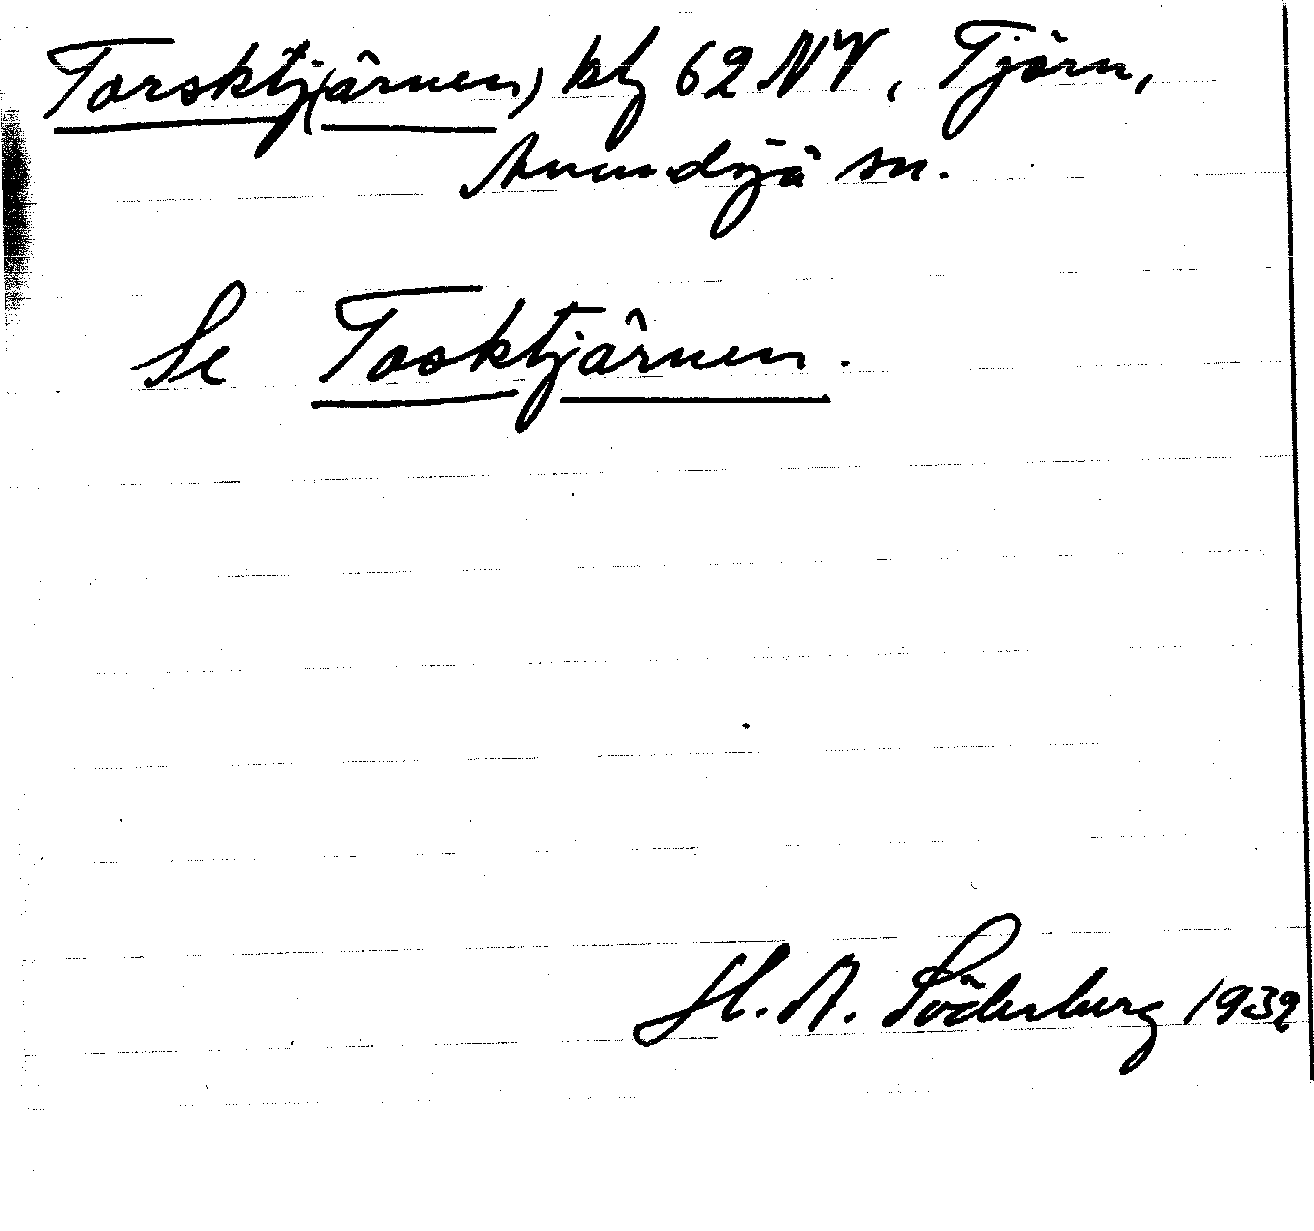 Torsktj(ärnen) blj 62 NV, Tjärn,
Anundsjö sn.
Se Tosktjärnen.
H. A. Söderberg 1932